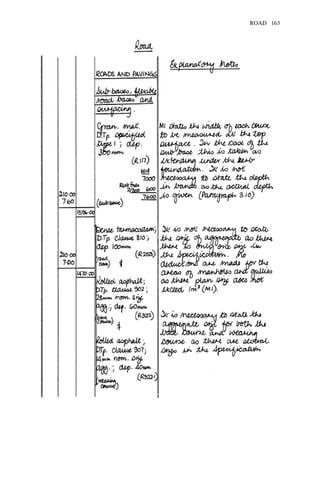 ROAD 163
Road
Explanatory Notes
ROADS AND PAVINGS
Sub-bases, flexible
road bases and
surfacing.
Gran. mat.
D.Tp specified
type 1; dep.
300mm
(R.117)
Wid
7000
600
7600
210·00
7·60
(sub-base)
1596·00
M1 states the width of each course
to be measured at the top
surface. In the case of the
sub-base this is taken as
extending under the kerb
foundation. It is not
necessary to state the depth
in bands as the actual depth
is given (Paragraph 3.10)
Dense tarmacadam;
D.Tp clause 810;
dep 100mm
(R322)
210·00
7·00
(road
base)
&
1470·00
It is not necessary to state
the size of aggregate as there
there is only one size in
the Specification. No
deductions are made for the
areas of manholes and gullies
as their plan size does not
exceed 1m² (M1).
Rolled asphalt;
D.Tp. clause 902;
28mm nom. size
agg.; dep. 60mm
(R323)
(base
course)
&
It is necessary to state the
aggregate size for both the
base course and wearing
course as there are several
sizes in the Specification
Rolled asphalt;
D.Tp. clause 907;
nom. size
agg.; dep. 40mm
(wearing
course)